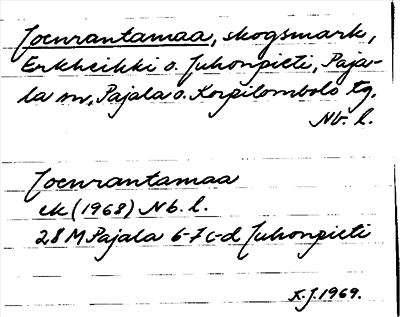 Joenrantamaa, skogsmark,
Erkheikki o. Juhonpieti, Paja-
la sn, Pajala o. Korpilombolo tg,
Nb. l.
Joenrantamaa
ek (1968) Nb. l.
28 M Pajala 6-7 c-d Juhonpieti
K.J. 1969.